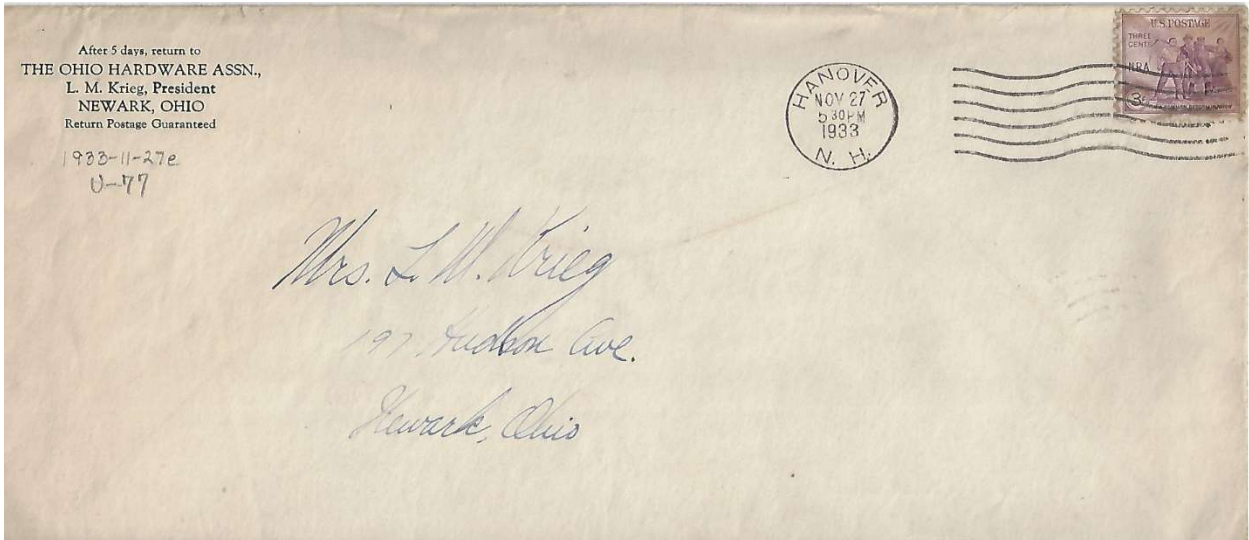 After 5 days, return to
THE OHIO HARDWARE ASSN.,
L. M. Krieg, President
NEWARK, OHIO
Return Postage Guaranteed
1933-11-27e
U-77
HANOVER
NOV 27
5 30 PM
1933
N. H.
U.S. POSTAGE
THREE
CENTS
NRA
3c
Mrs. L. M. Krieg
197 Hudson Ave.
Newark, Ohio